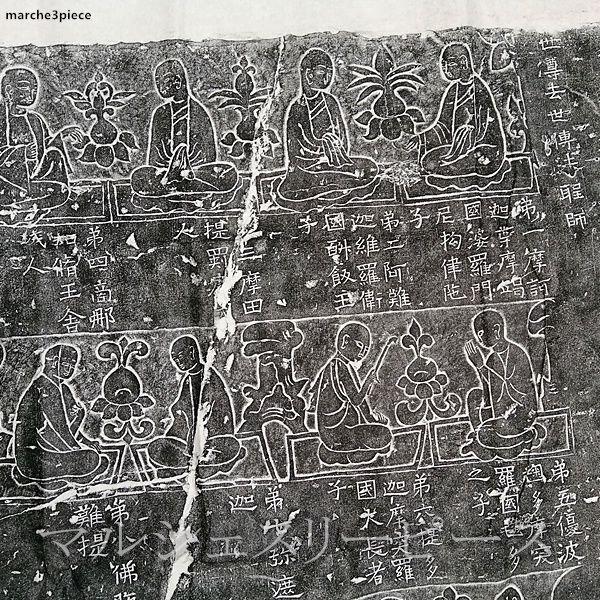 marche3piece
世尊去世傳法聖師
第一摩訶
迦葉摩竭
國婆羅門
尼拘律陀
子
第二阿難
迦維羅衛
國斛飯王
子
三摩田
提罽賓
人
第四商那
和脩王舍
城人
第五優波
多
羅國
之子
第六提多
迦摩突羅
國大長者
子
第七弥遮
迦
第 佛陁
難提
マルシェスリーピース